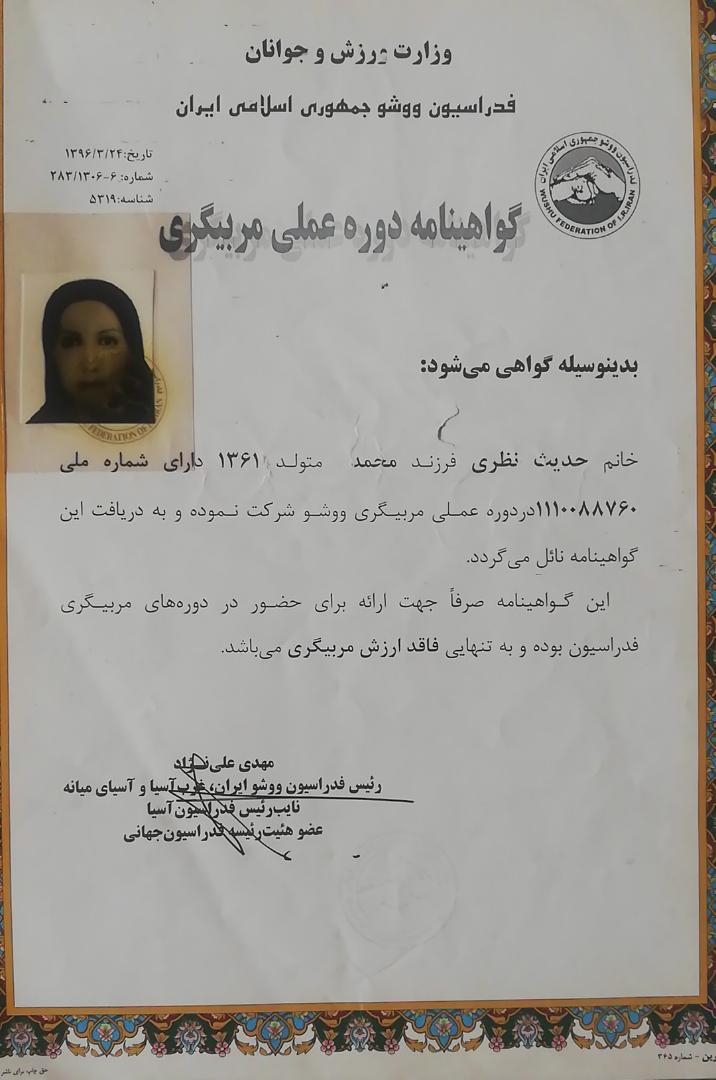 وزارت ورزش و جوانان
فدراسیون ووشو جمهوری اسلامی ایران
تاریخ: ۱۳۹۶/۳/۲۴
شماره: ۶-۲۸۳/۱۳۰۶
شناسه: ۵۳۱۹
فدراسیون ووشو جمهوری اسلامی ایران
WUSHU FEDERATION OF I.R.IRAN
گواهینامه دوره عملی مربیگری
بدینوسیله گواهی می‌شود:
FEDERATION OF I.R.IRAN
خانم حدیث نظری فرزند محمد متولد ۱۳۶۱ دارای شماره ملی
۱۱۱۰۰۸۸۷۶۰دردوره عملی مربیگری ووشو شرکت نموده و به دریافت این
گواهینامه نائل می‌گردد.
این گواهینامه صرفاً جهت ارائه برای حضور در دوره‌های مربیگری
فدراسیون بوده و به تنهایی فاقد ارزش مربیگری می‌باشد.
مهدی علی‌نژاد
رئیس فدراسیون ووشو ایران، غرب‌آسیا و آسیای میانه
نایب‌رئیس فدراسیون‌آسیا
عضو هئیت‌رئیسه فدراسیون‌جهانی
رین - شماره ۳۶۵
حق چاپ برای ناشر